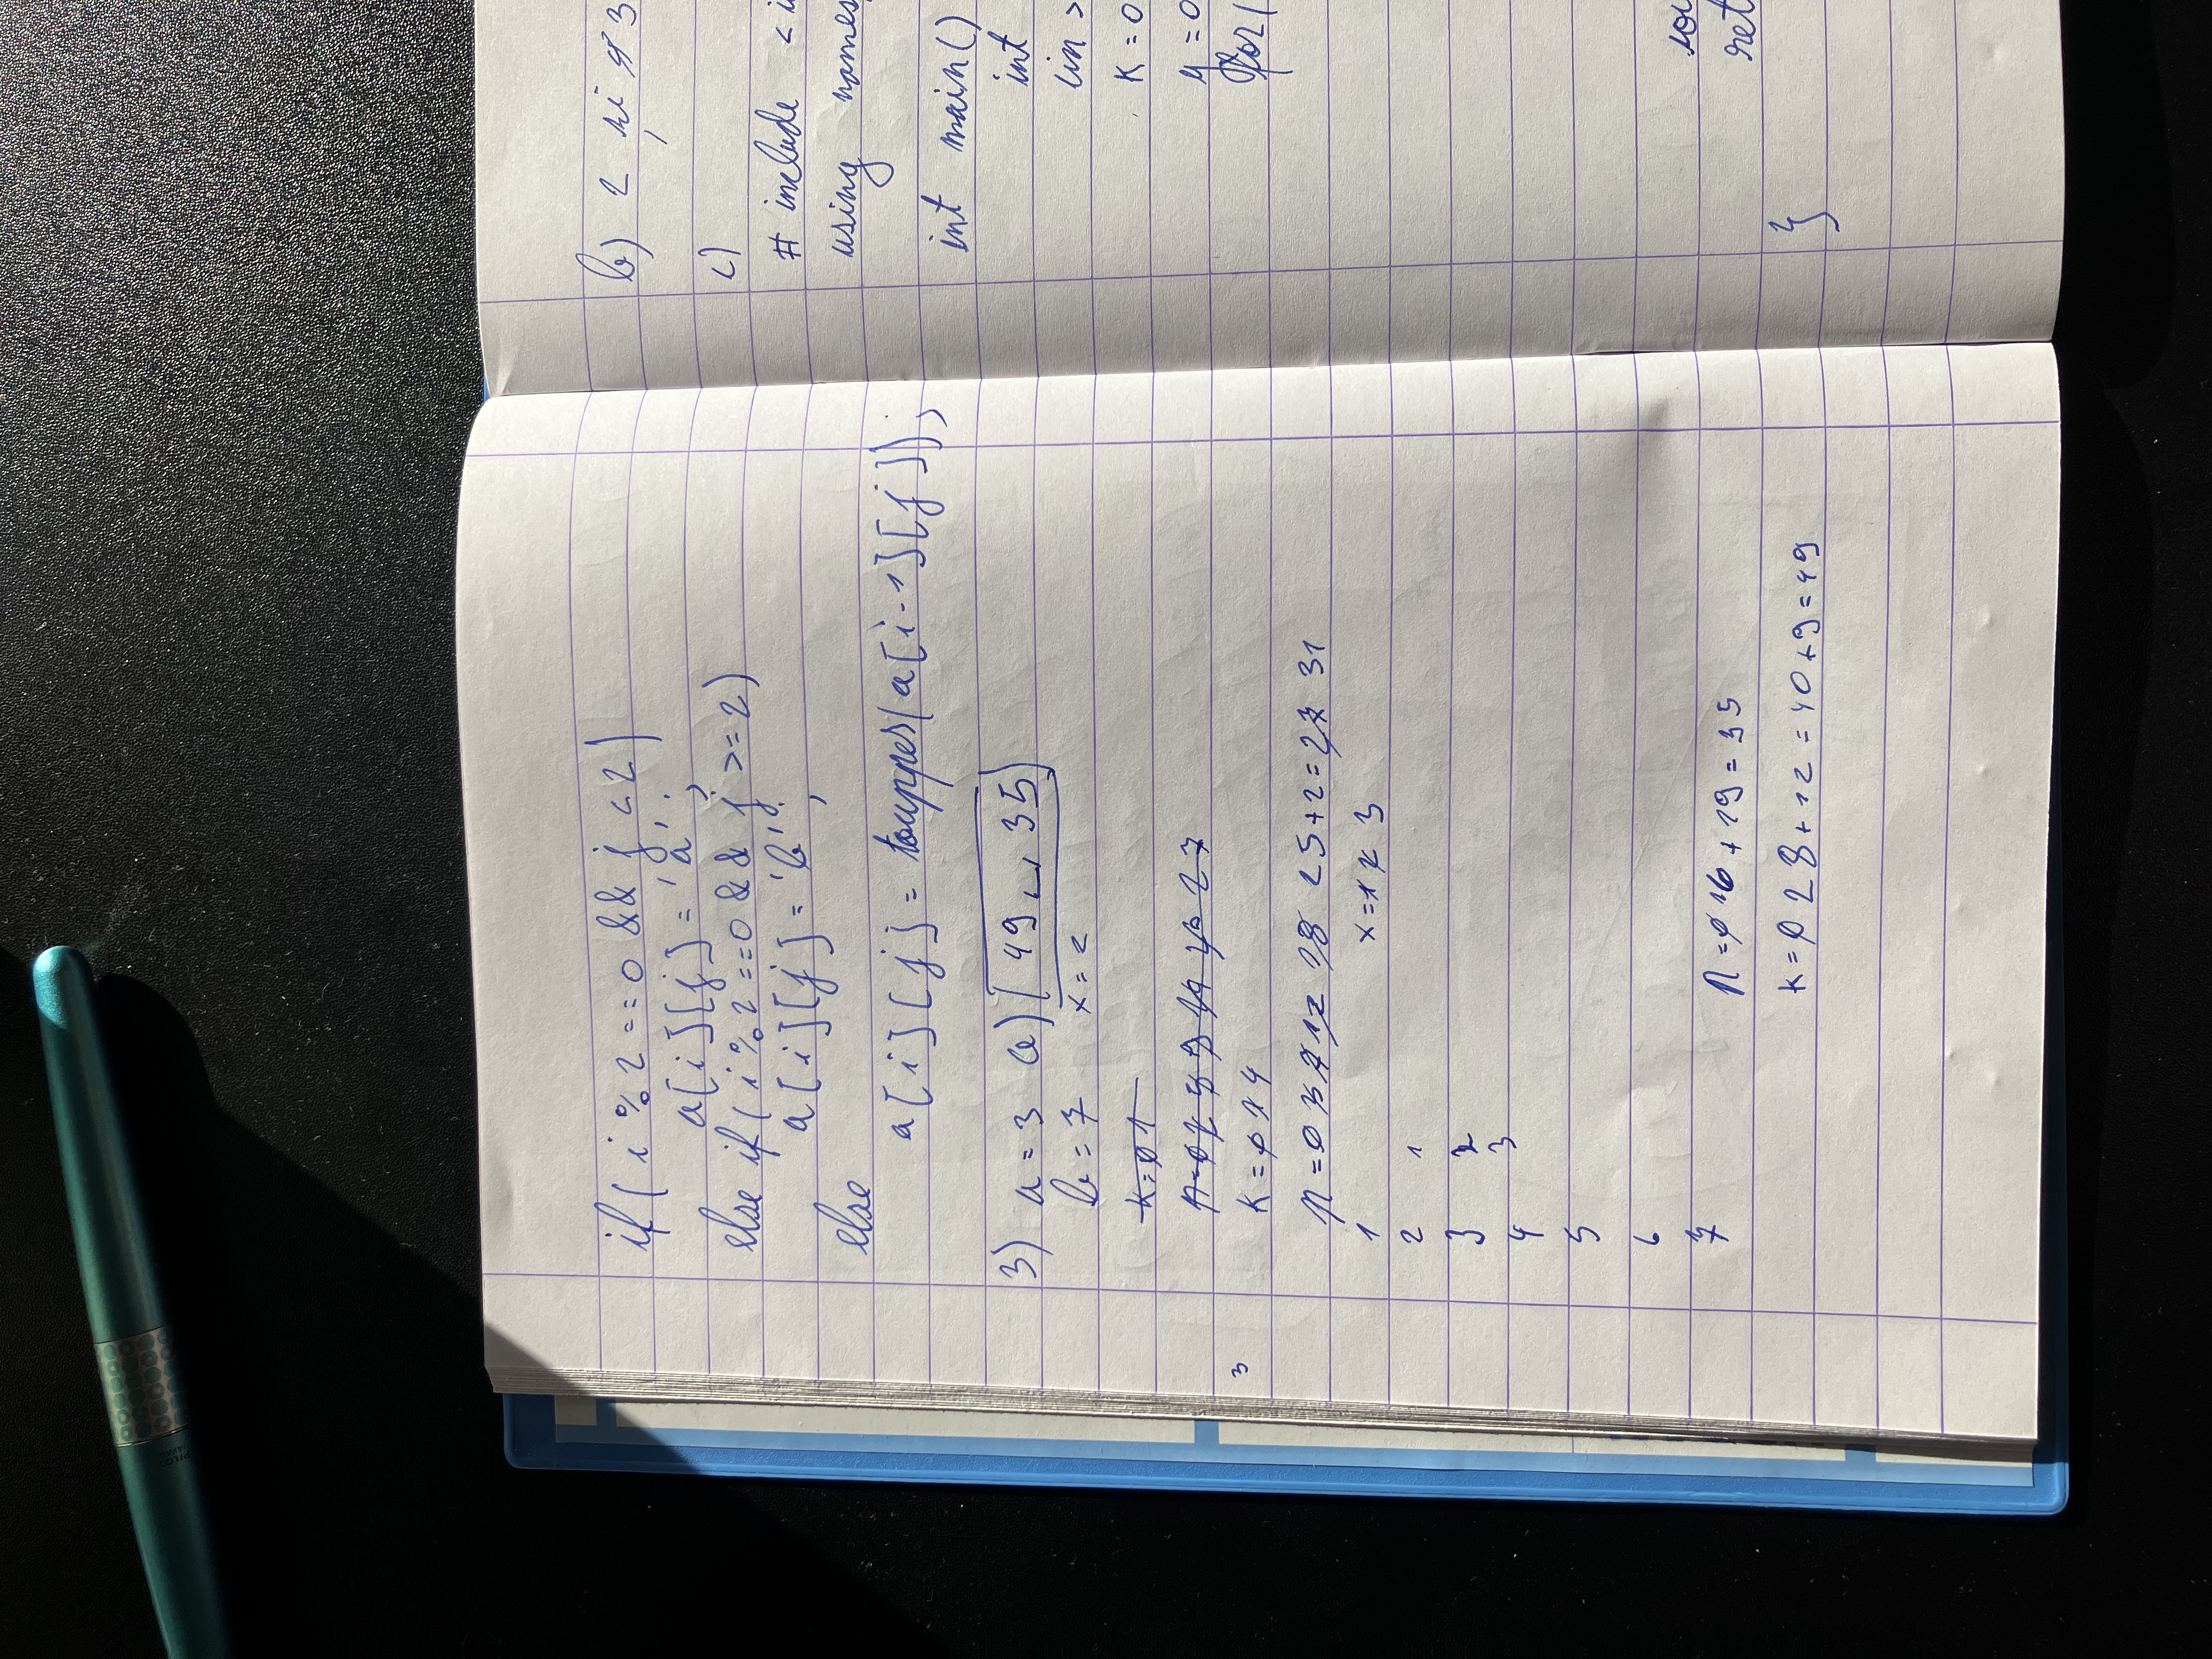 if( i % 2 == 0 && j < 2)
a[i][j] = 'a';
else if( i % 2 == 0 && j >= 2)
a[i][j] = 'b';
else
a[i][j] = toupper(a[i-1][j]);
3) a = 3 a) 49 ␣ 35
b = 7 x = 2
k = 0 1
k = 0 1 4
n = 0 3 7 12 18 25+2=27 31
1 x = 1 2 3
2 1
3 2
3
4
5
6
7
n = 0 16 + 19 = 35
k = 0 28 + 12 = 40 + 9 = 49
3
b) 2 si 3
c)
# include <i
using names
int main()
int
cin >
k = 0
y = 0
for(
cou
ret
}